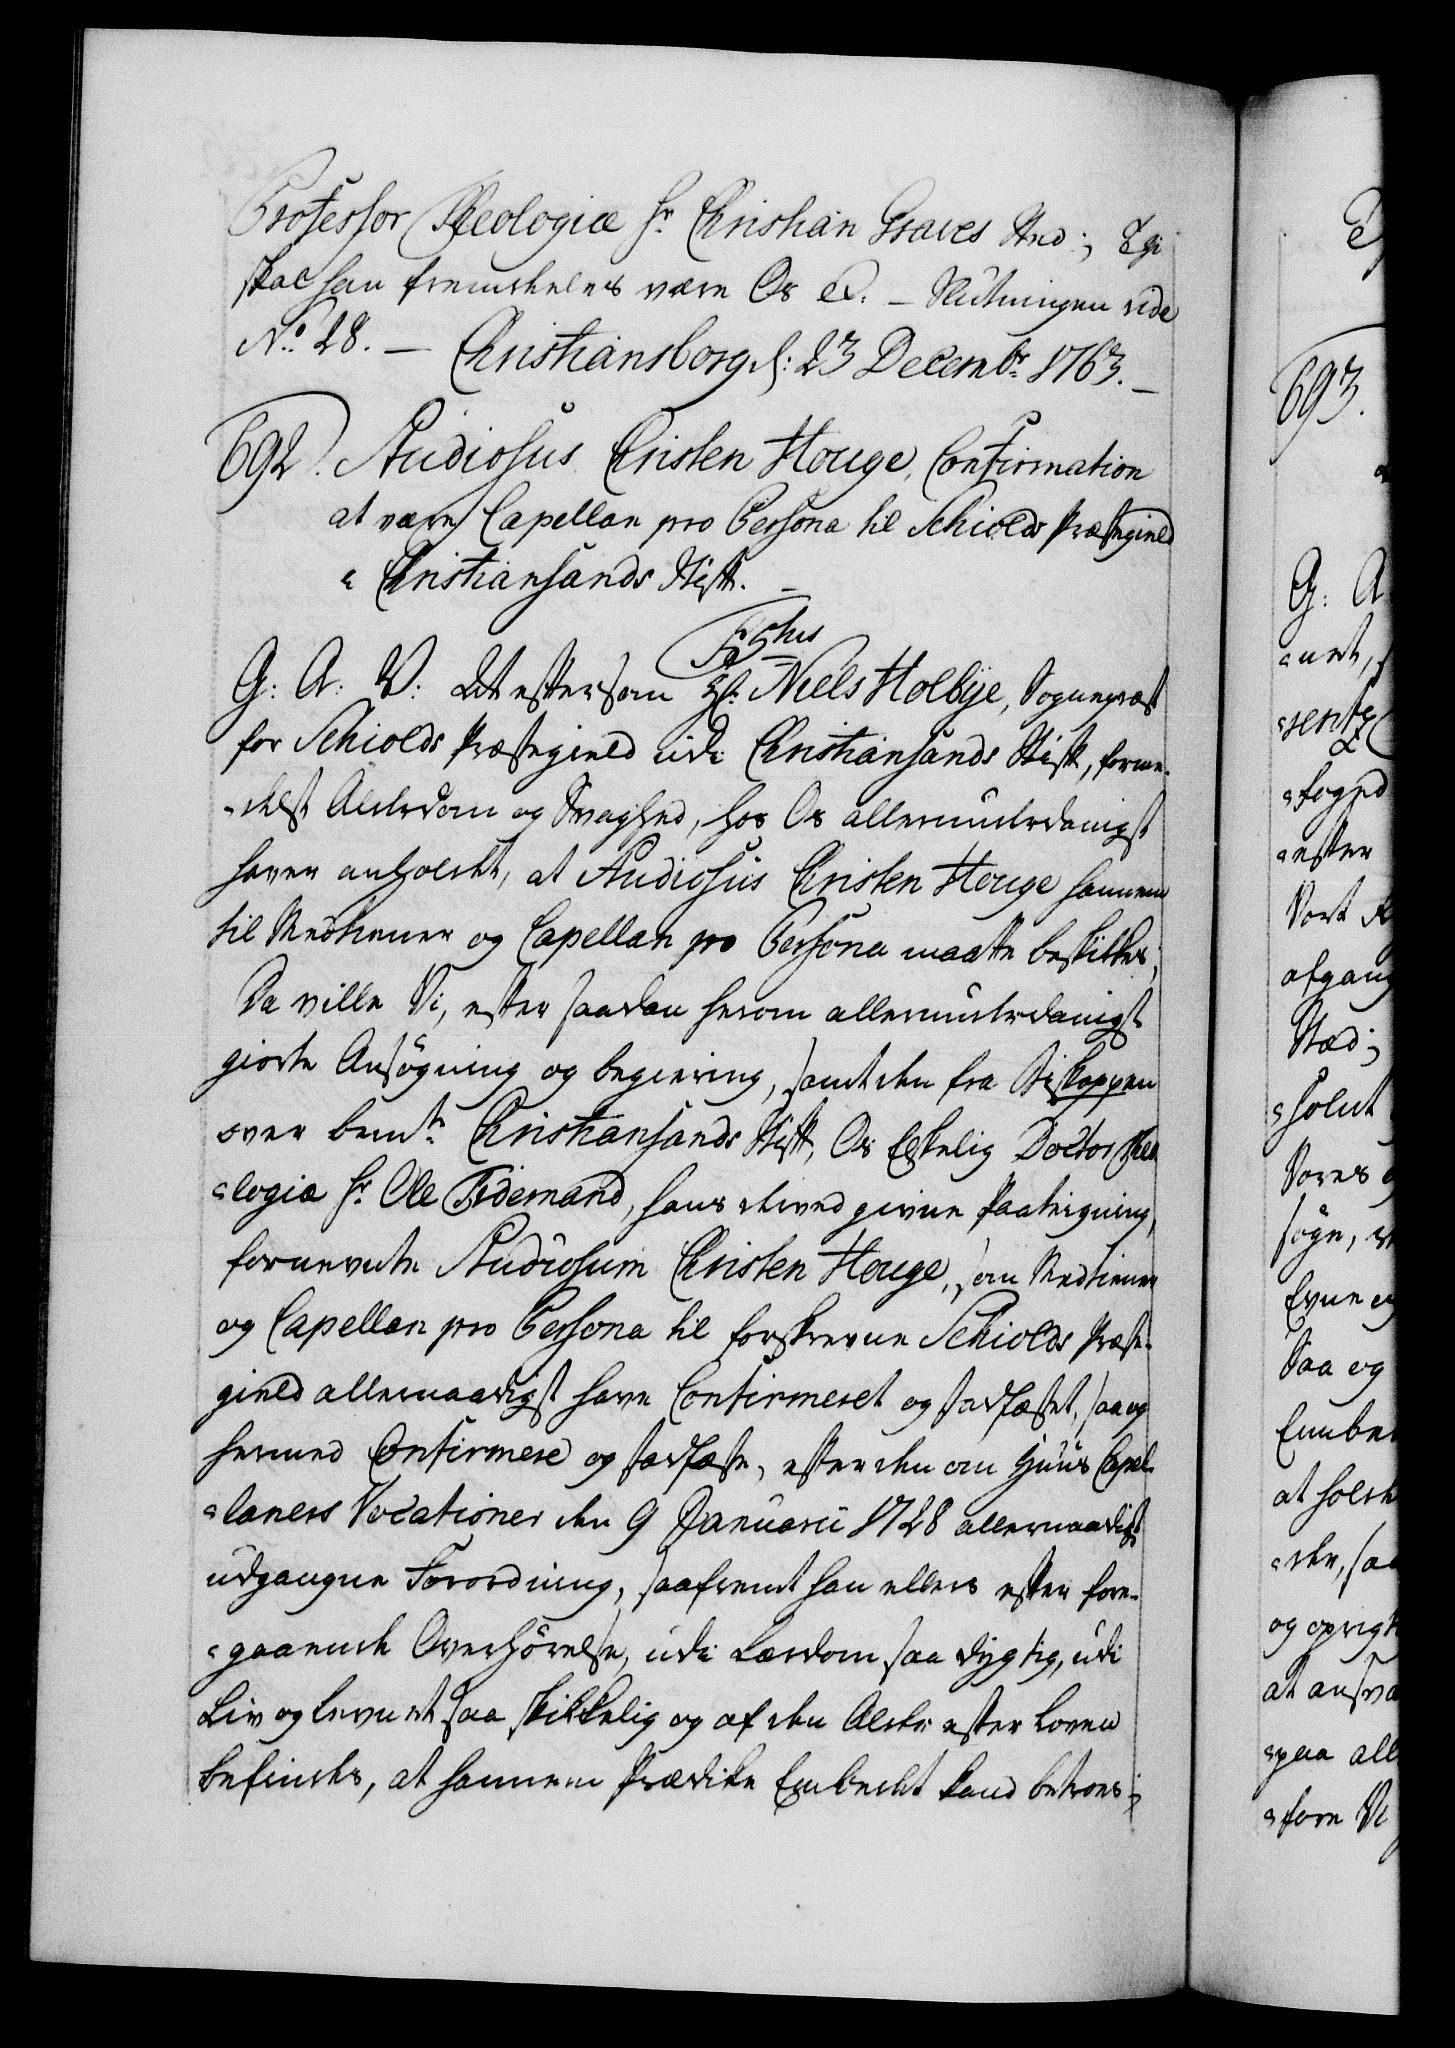 Professor Theologiæ Hr Christian Graves Sted; Thi
skal han fremdeles være Os &. – Slutningen vide
No 28. – Christiansborg d: 23 Decembr 1763. –
692. Studiosus Christen Houge, Confirmation
at være Capellan pro Persona til Schiolds Præstegield
i Christiansands Stift. –
G: A: V: at eftersom Hr Niels Holbye, Sognepræst
for Schiolds Præstegield udi Christiansands Stift, forme-
-delst Alderdom og Svaghed, hos Os allerunderdanigst
haver anholdet, at Studiosus Christen Houge hannem
til Medtiener og Capellan pro Persona maatte beskikkes,
Da ville Vi, efter saadan herom allerunderdanigst
giorte Ansøgning og begiering, samt den fra Biskoppen
over bemte Christiansands Stift, Os Elskelig Doctor Theo-
-logiæ Hr Ole Tidemand, hans derved givne Paategning,
fornevnte Studiosum Christen Houge, som Medtiener
og Capellan pro Persona til forskrevne Schiolds Præste-
gield allernaadigst have Confirmeret og stadfæstet, saa og
hermed Confirmere og stadfæste, efter den om Huus Capel-
-laners Vocationer den 9 Januarii 1728 allernaadigst
udgangne Forordning, saafremt han ellers efter fore-
-gaaende Overhørelse, udi Lærdom saa dygtig, udi
Liv og levnet saa skikkelig og af den Alder efter Loven
befindes, at hannem Prædike Embedet kand betroes;
693.
G: A
-net,
-fogd
-efter
Vort
afgang
Sted;
-holdt
Vores
søge,
Evne
Saa og
Embed
at holde
-de, saa
og oprigt
at ansva
-paa all
-fore Vi